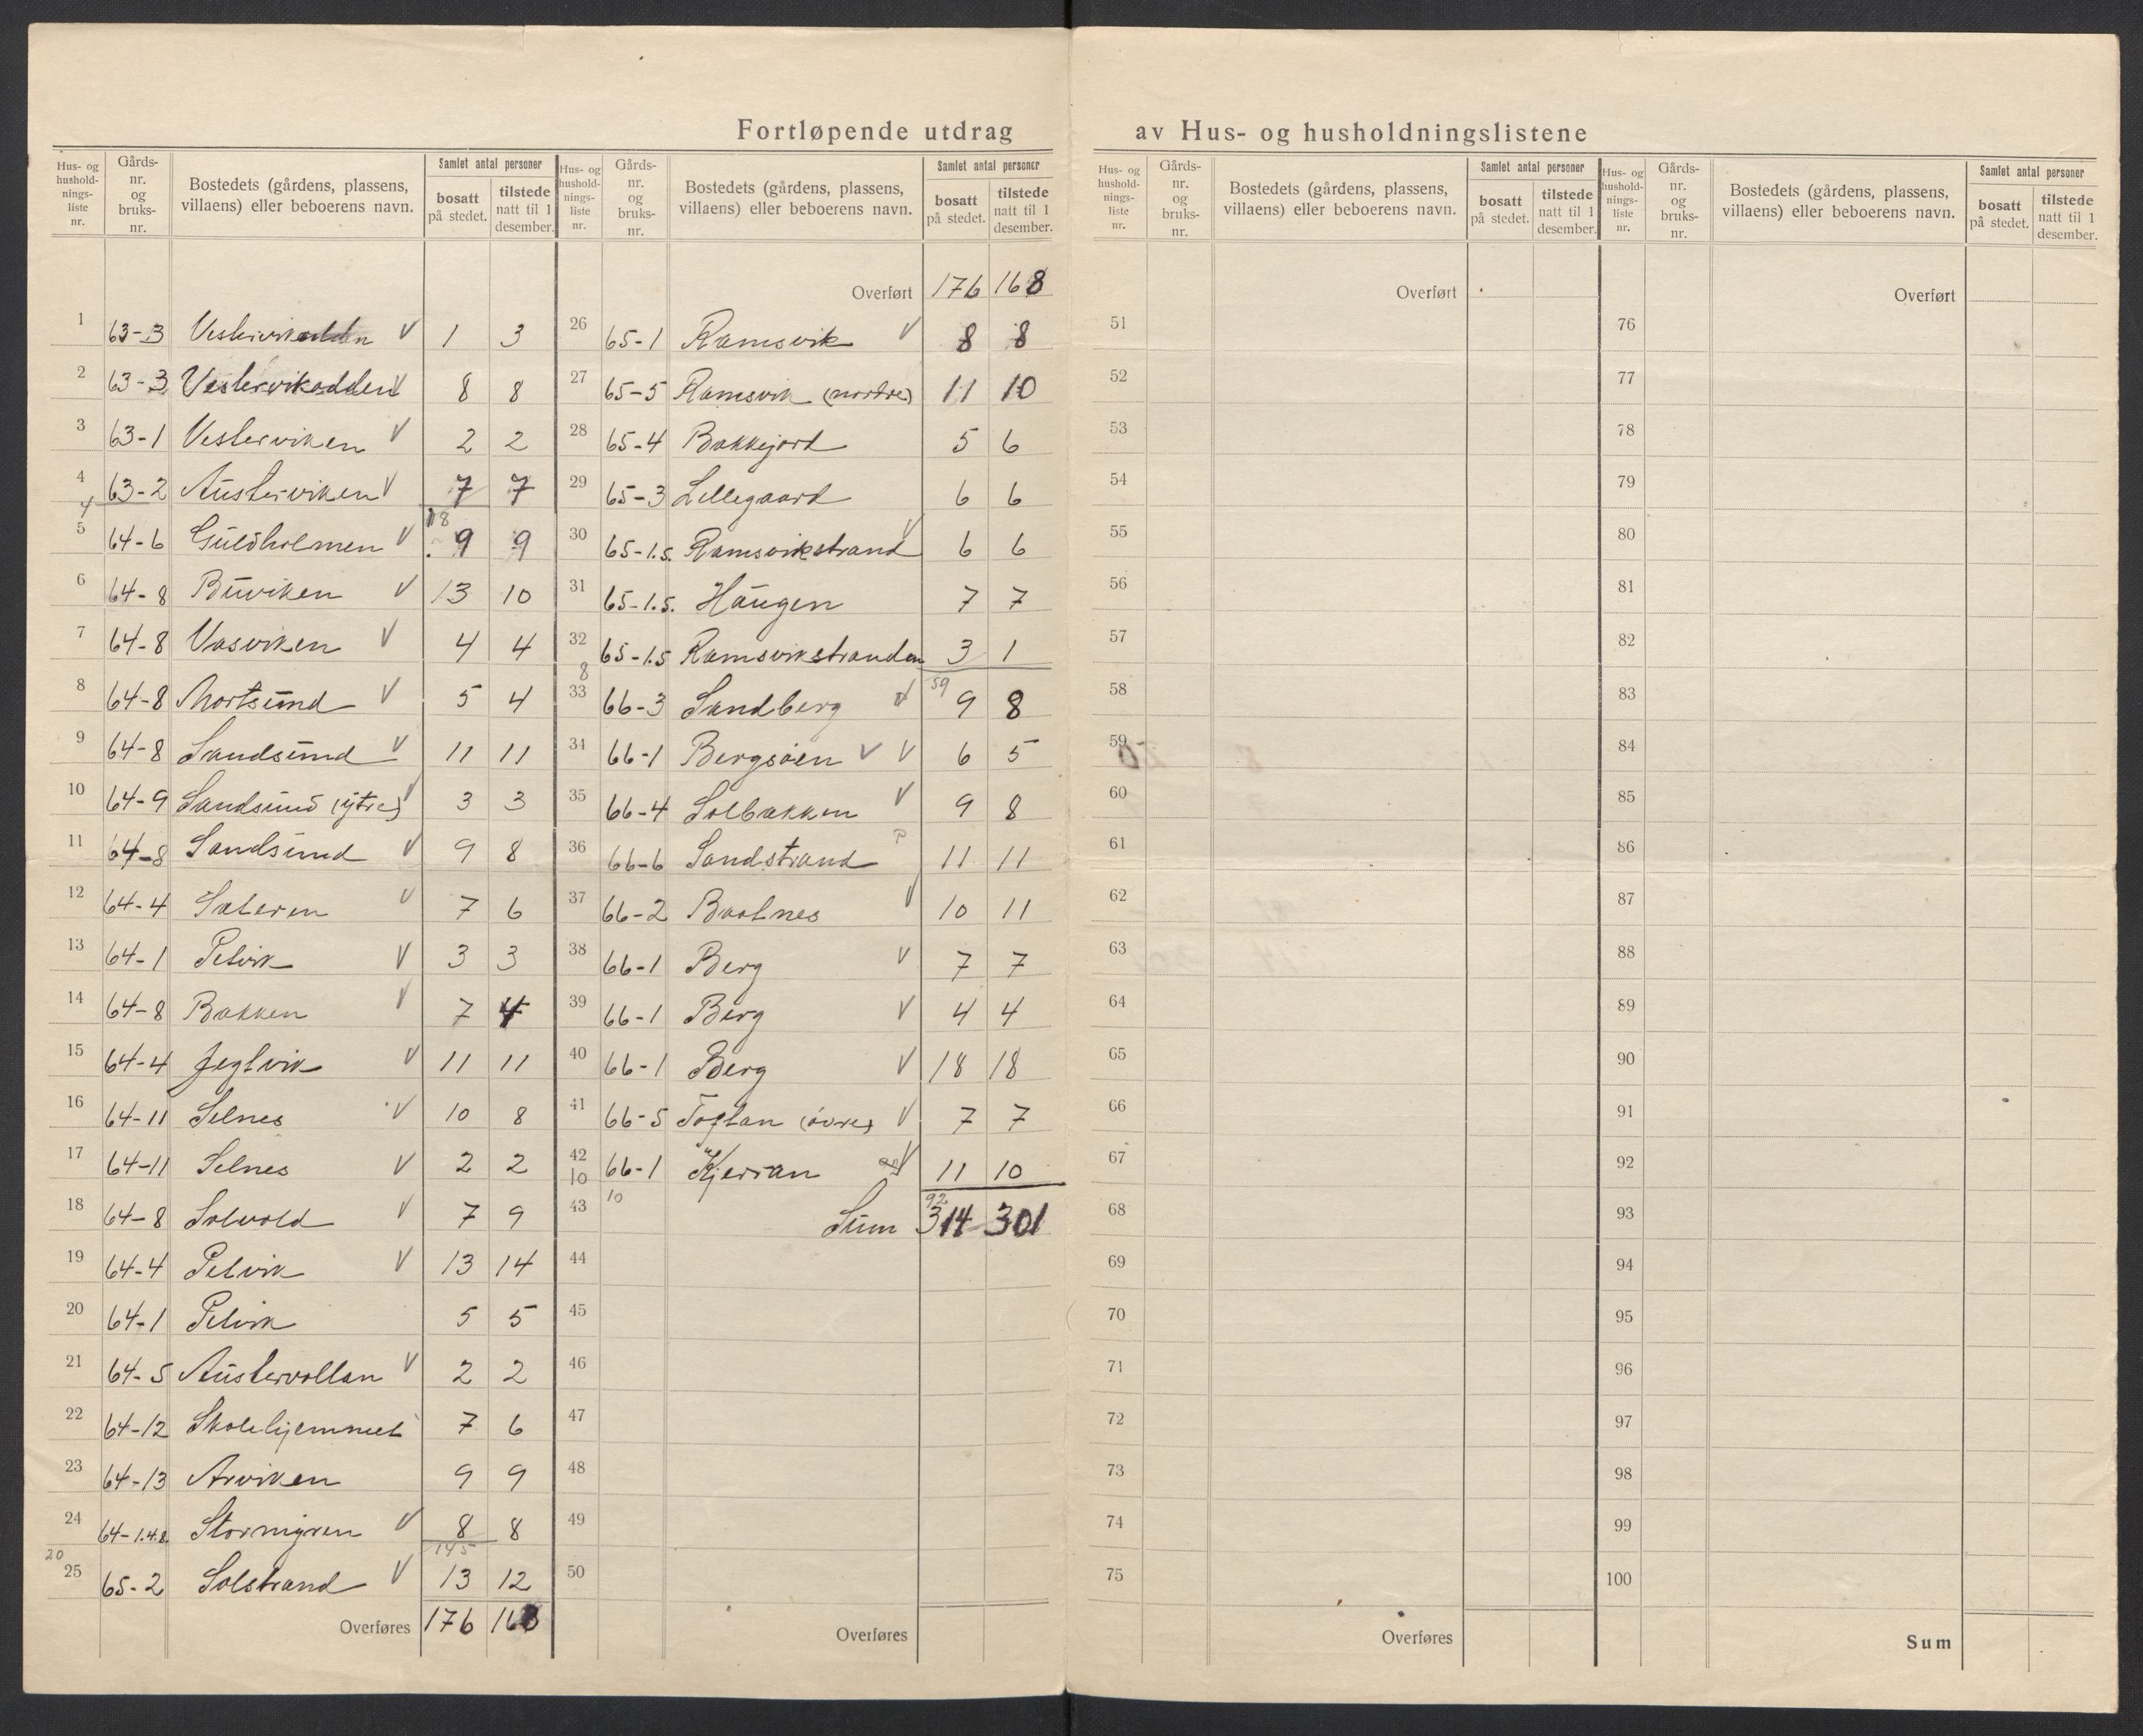 Fortløpende utdrag av Hus- og husholdningslistene
Hus- og husholdnings-liste nr. | Gårds-nr. og bruks-nr. | Bostedets (gårdens, plassens, villaens) eller beboerens navn. | Samlet antal personer | bosatt på stedet. | tilstede natt til 1 desember.
1 63-3 Vestervikodden V 1 3
2 63-3 Vestervikodden V 8 8
3 63-1 Vesterviken V 2 2
4 63-2 Austerviken V 7 7
4 18
5 64-6 Guldholmen V 9 9
6 64-8 Buviken V 13 10
7 64-8 Vasviken V 4 4
8 64-8 Mortsund V 5 4
9 64-8 Sandsund V 11 11
10 64-9 Sandsund (ytre) V 3 3
11 64-8 Sandsund V 9 8
12 64-4 Sæteren V 7 6
13 64-1 Pelvik V 3 3
14 64-8 Bakken V 7 4
15 64-4 Jegtvik V 11 11
16 64-11 Selnes V 10 8
17 64-11 Selnes V 2 2
18 64-8 Solvold V 7 9
19 64-4 Pelvik V 13 14
20 64-1 Pelvik 5 5
21 64-5 Austervollan V 2 2
22 64-12 Skolehjemmet 7 6
23 64-13 Arviken 9 9
24 64-1.4.8. Stormyren V 8 8
20 145
25 65-2 Solstrand V 13 12
Overføres 176 168
Hus- og husholdnings-liste nr. | Gårds-nr. og bruks-nr. | Bostedets (gårdens, plassens, villaens) eller beboerens navn. | Samlet antal personer | bosatt på stedet. | tilstede natt til 1 desember.
Overført 176 168
26 65-1 Ramsvik V 8 8
27 65-5 Ramsvik (nordre) 11 10
28 65-4 Bakkejord 5 6
29 65-3 Lillegaard 6 6
30 65-1.5. Ramsvikstrand V 6 6
31 65-1.5. Haugen 7 7
32 65-1.5 Ramsvikstranden 3 1
8 59
33 66-3 Sandberg V 9 8
34 66-1 Bergsøen V V 6 5
35 66-4 Solbakken V 9 8
36 66-6 Sandstrand 11 11
37 66-2 Baatnes V 10 11
38 66-1 Berg V 7 7
39 66-1 Berg V 4 4
40 66-1 Berg V 18 18
41 66-5 Toftan (øvre) V 7 7
42 66-1 Kjerran V 11 10
10 10 92
43 Sum 314 301
44
45
46
47
48
49
50
Overføres
Hus- og husholdnings-liste nr. | Gårds-nr. og bruks-nr. | Bostedets (gårdens, plassens, villaens) eller beboerens navn. | Samlet antal personer | bosatt på stedet. | tilstede natt til 1 desember.
Overført
51
52
53
54
55
56
57
58
59
60
61
62
63
64
65
66
67
68
69
70
71
72
73
74
75
Overføres
Hus- og husholdnings-liste nr. | Gårds-nr. og bruks-nr. | Bostedets (gårdens, plassens, villaens) eller beboerens navn. | Samlet antal personer | bosatt på stedet. | tilstede natt til 1 desember.
Overført
76
77
78
79
80
81
82
83
84
85
86
87
88
89
90
91
92
93
94
95
96
97
98
99
100
Sum